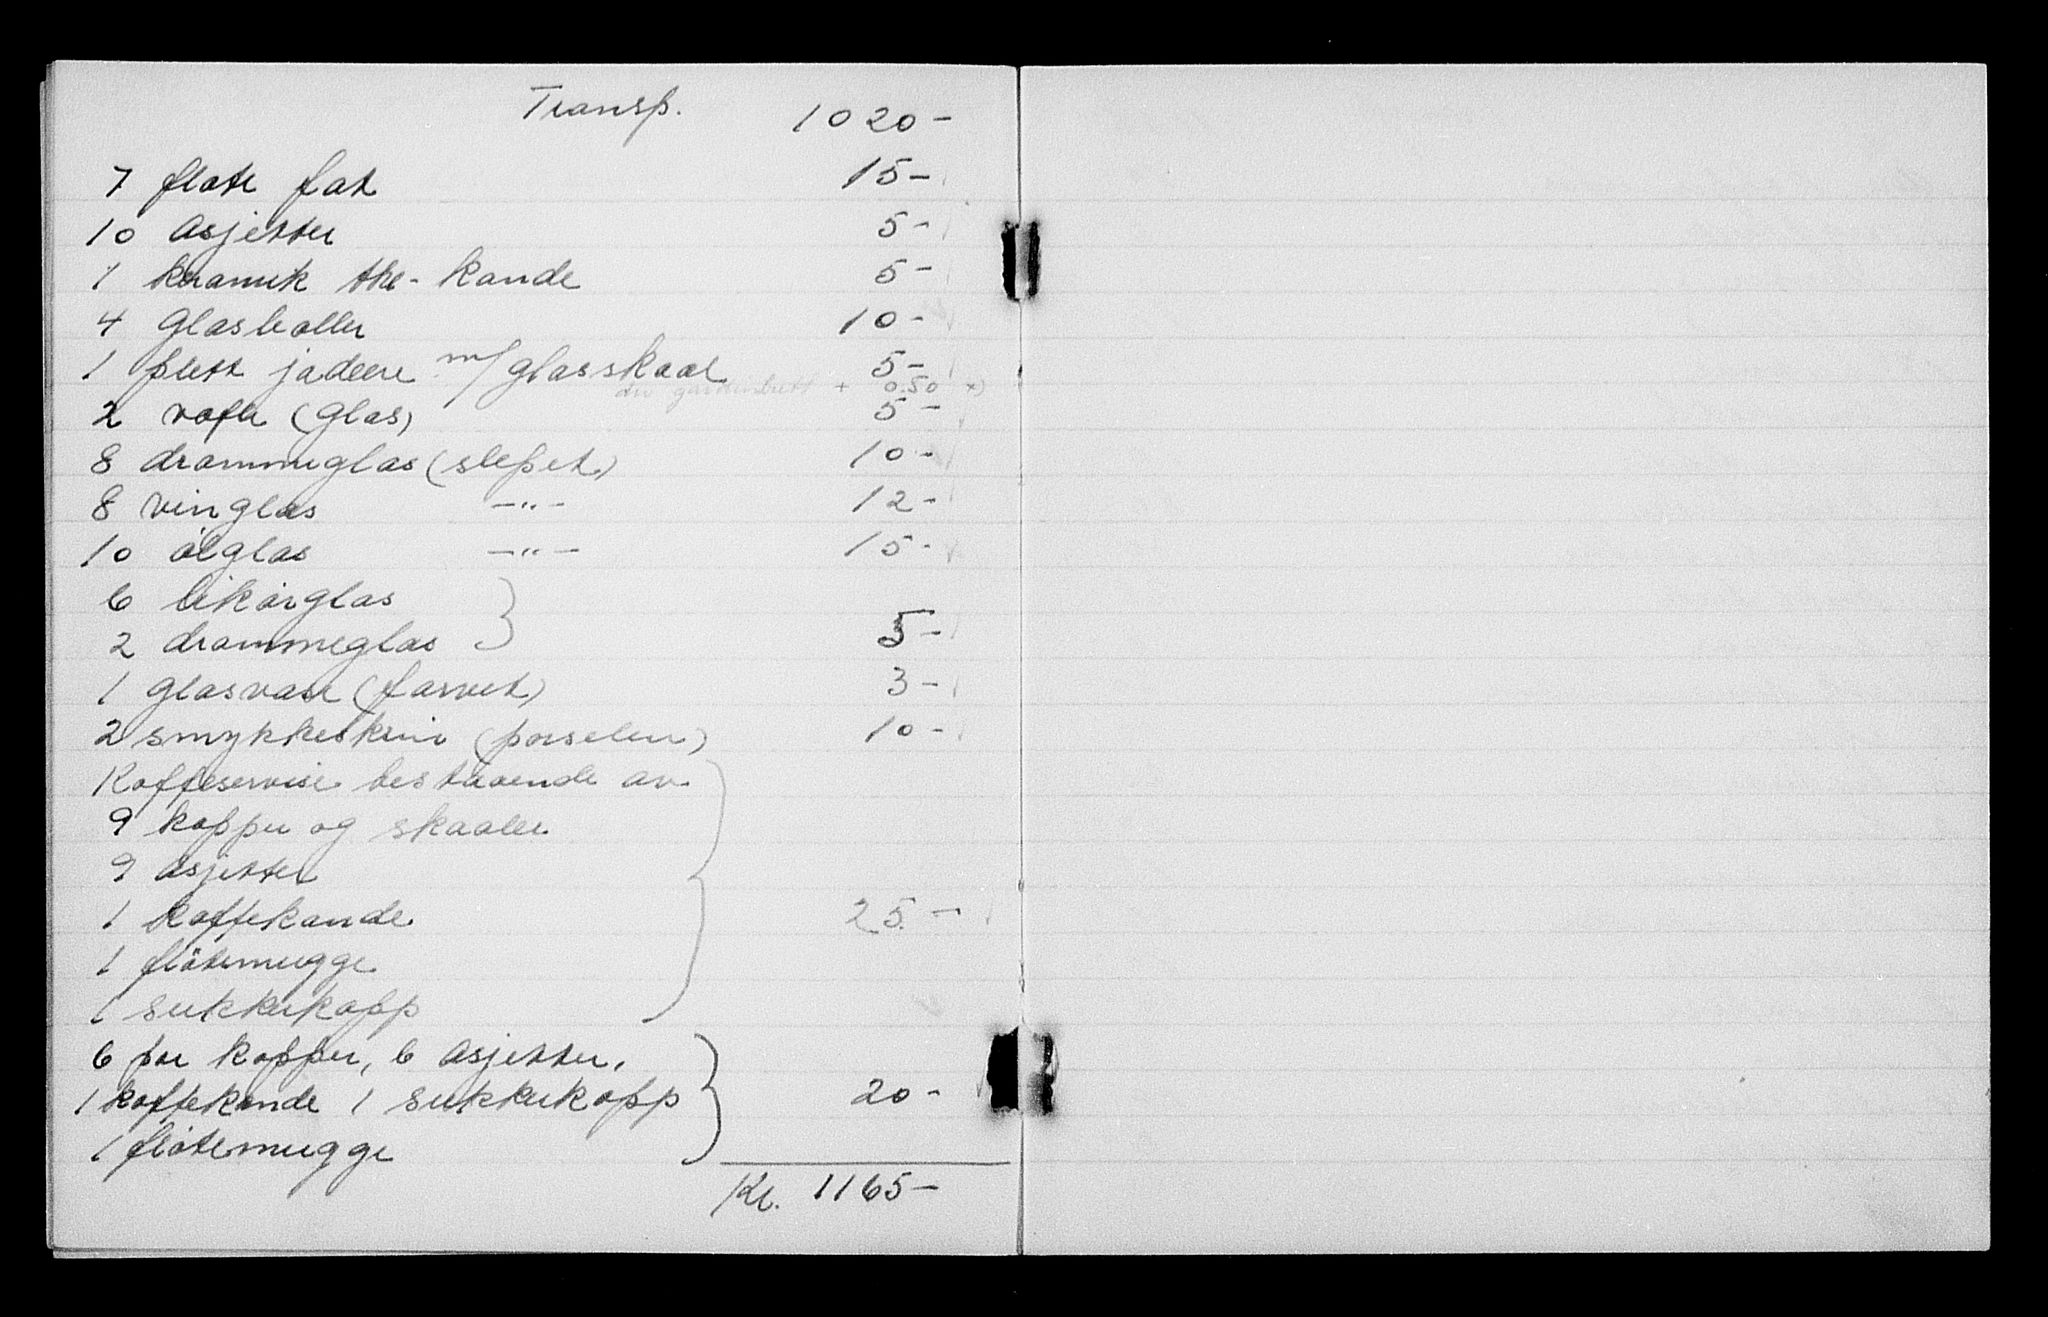 Transp. 1020-
7 flate fat 15-
10 Asjetter 5-
1 keramik the-kande 5-
4 Glasboller 10-
1 plett jadiere m/ glasskaal 5-
+ 0.50
2 vaser (Glas) 5-
8 drammeglas (slepet) 10-
8 vinglas -"- 12-
10 ölglas -"- 15-
6 likörglas
2 drammeglas 5-
1 Glasvase (farvet) 3-
2 smykkeskrin (porselen) 10-
Kaffeservise bestaaende av
9 kopper og skaaler
9 asjetter
1 kaffekande 25.-
1 flötemugge
1 sukkerkopp
6 par kopper, 6 Asjetter,
1 kaffekande 1 sukkerkopp 20-
1 flötemugge
Kr. 1165-